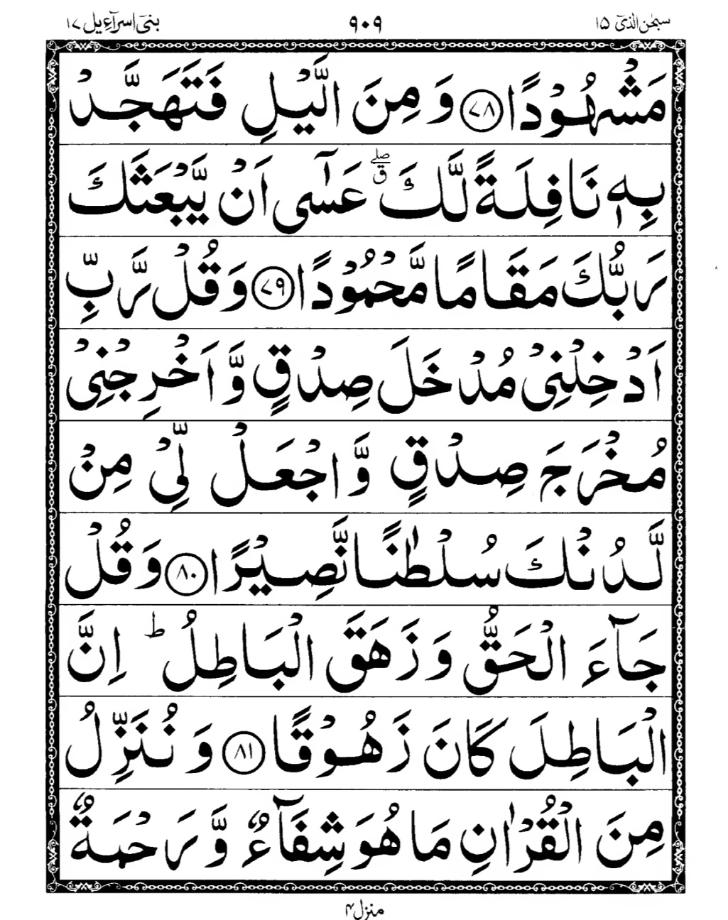 سبحٰن الذیٓ ۱۵ ۹۰۹ بنیٓ اسرآءیل ۱۷
مَشْهُوْدًا ﴿۷۸﴾ وَ مِنَ الَّیْلِ فَتَهَجَّدْ
بِهٖ نَافِلَةً لَّكَ ۖۗ عَسٰۤی اَنْ یَّبْعَثَكَ
رَبُّكَ مَقَامًا مَّحْمُوْدًا ﴿۷۹﴾ وَ قُلْ رَّبِّ
اَدْخِلْنِیْ مُدْخَلَ صِدْقٍ وَّ اَخْرِجْنِیْ
مُخْرَجَ صِدْقٍ وَّ اجْعَلْ لِّیْ مِنْ
لَّدُنْكَ سُلْطٰنًا نَّصِیْرًا ﴿۸۰﴾ وَ قُلْ
جَآءَ الْحَقُّ وَ زَهَقَ الْبَاطِلُ ؕ اِنَّ
الْبَاطِلَ كَانَ زَهُوْقًا ﴿۸۱﴾ وَ نُنَزِّلُ
مِنَ الْقُرْاٰنِ مَا هُوَ شِفَآءٌ وَّ رَحْمَةٌ
منزل ۴